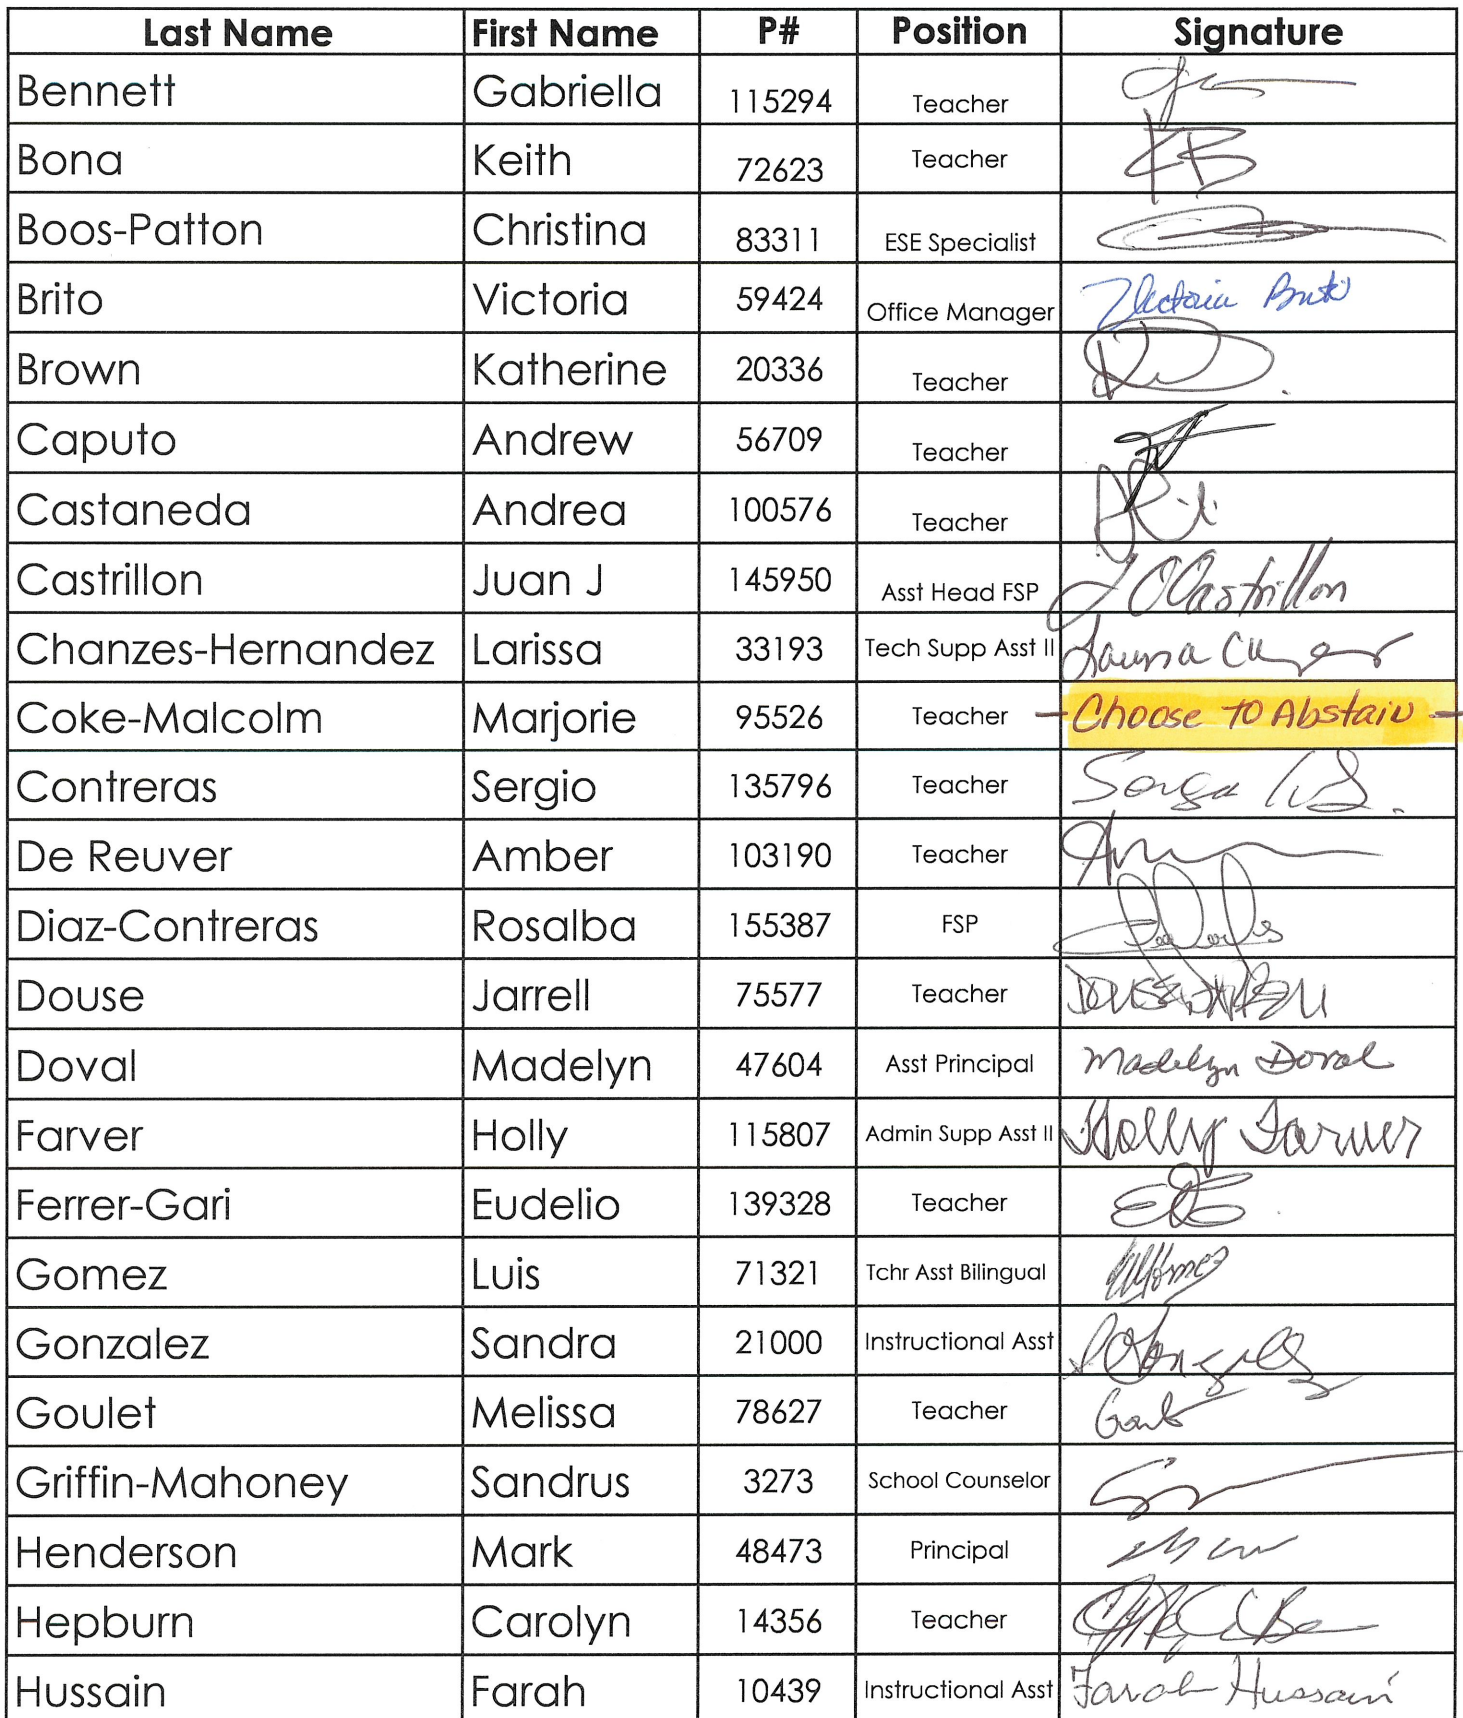 Last Name First Name P# Position Signature
Bennett Gabriella 115294 Teacher
Bona Keith 72623 Teacher KB
Boos-Patton Christina 83311 ESE Specialist
Brito Victoria 59424 Office Manager Victoria Brito
Brown Katherine 20336 Teacher
Caputo Andrew 56709 Teacher
Castaneda Andrea 100576 Teacher
Castrillon Juan J 145950 Asst Head FSP Castrillon
Chanzes-Hernandez Larissa 33193 Tech Supp Asst II
Coke-Malcolm Marjorie 95526 Teacher - Choose TO Abstain -
Contreras Sergio 135796 Teacher
De Reuver Amber 103190 Teacher
Diaz-Contreras Rosalba 155387 FSP
Douse Jarrell 75577 Teacher
Doval Madelyn 47604 Asst Principal Madelyn Doval
Farver Holly 115807 Admin Supp Asst II Holly Farver
Ferrer-Gari Eudelio 139328 Teacher
Gomez Luis 71321 Tchr Asst Bilingual
Gonzalez Sandra 21000 Instructional Asst
Goulet Melissa 78627 Teacher
Griffin-Mahoney Sandrus 3273 School Counselor
Henderson Mark 48473 Principal
Hepburn Carolyn 14356 Teacher
Hussain Farah 10439 Instructional Asst Farah Hussain